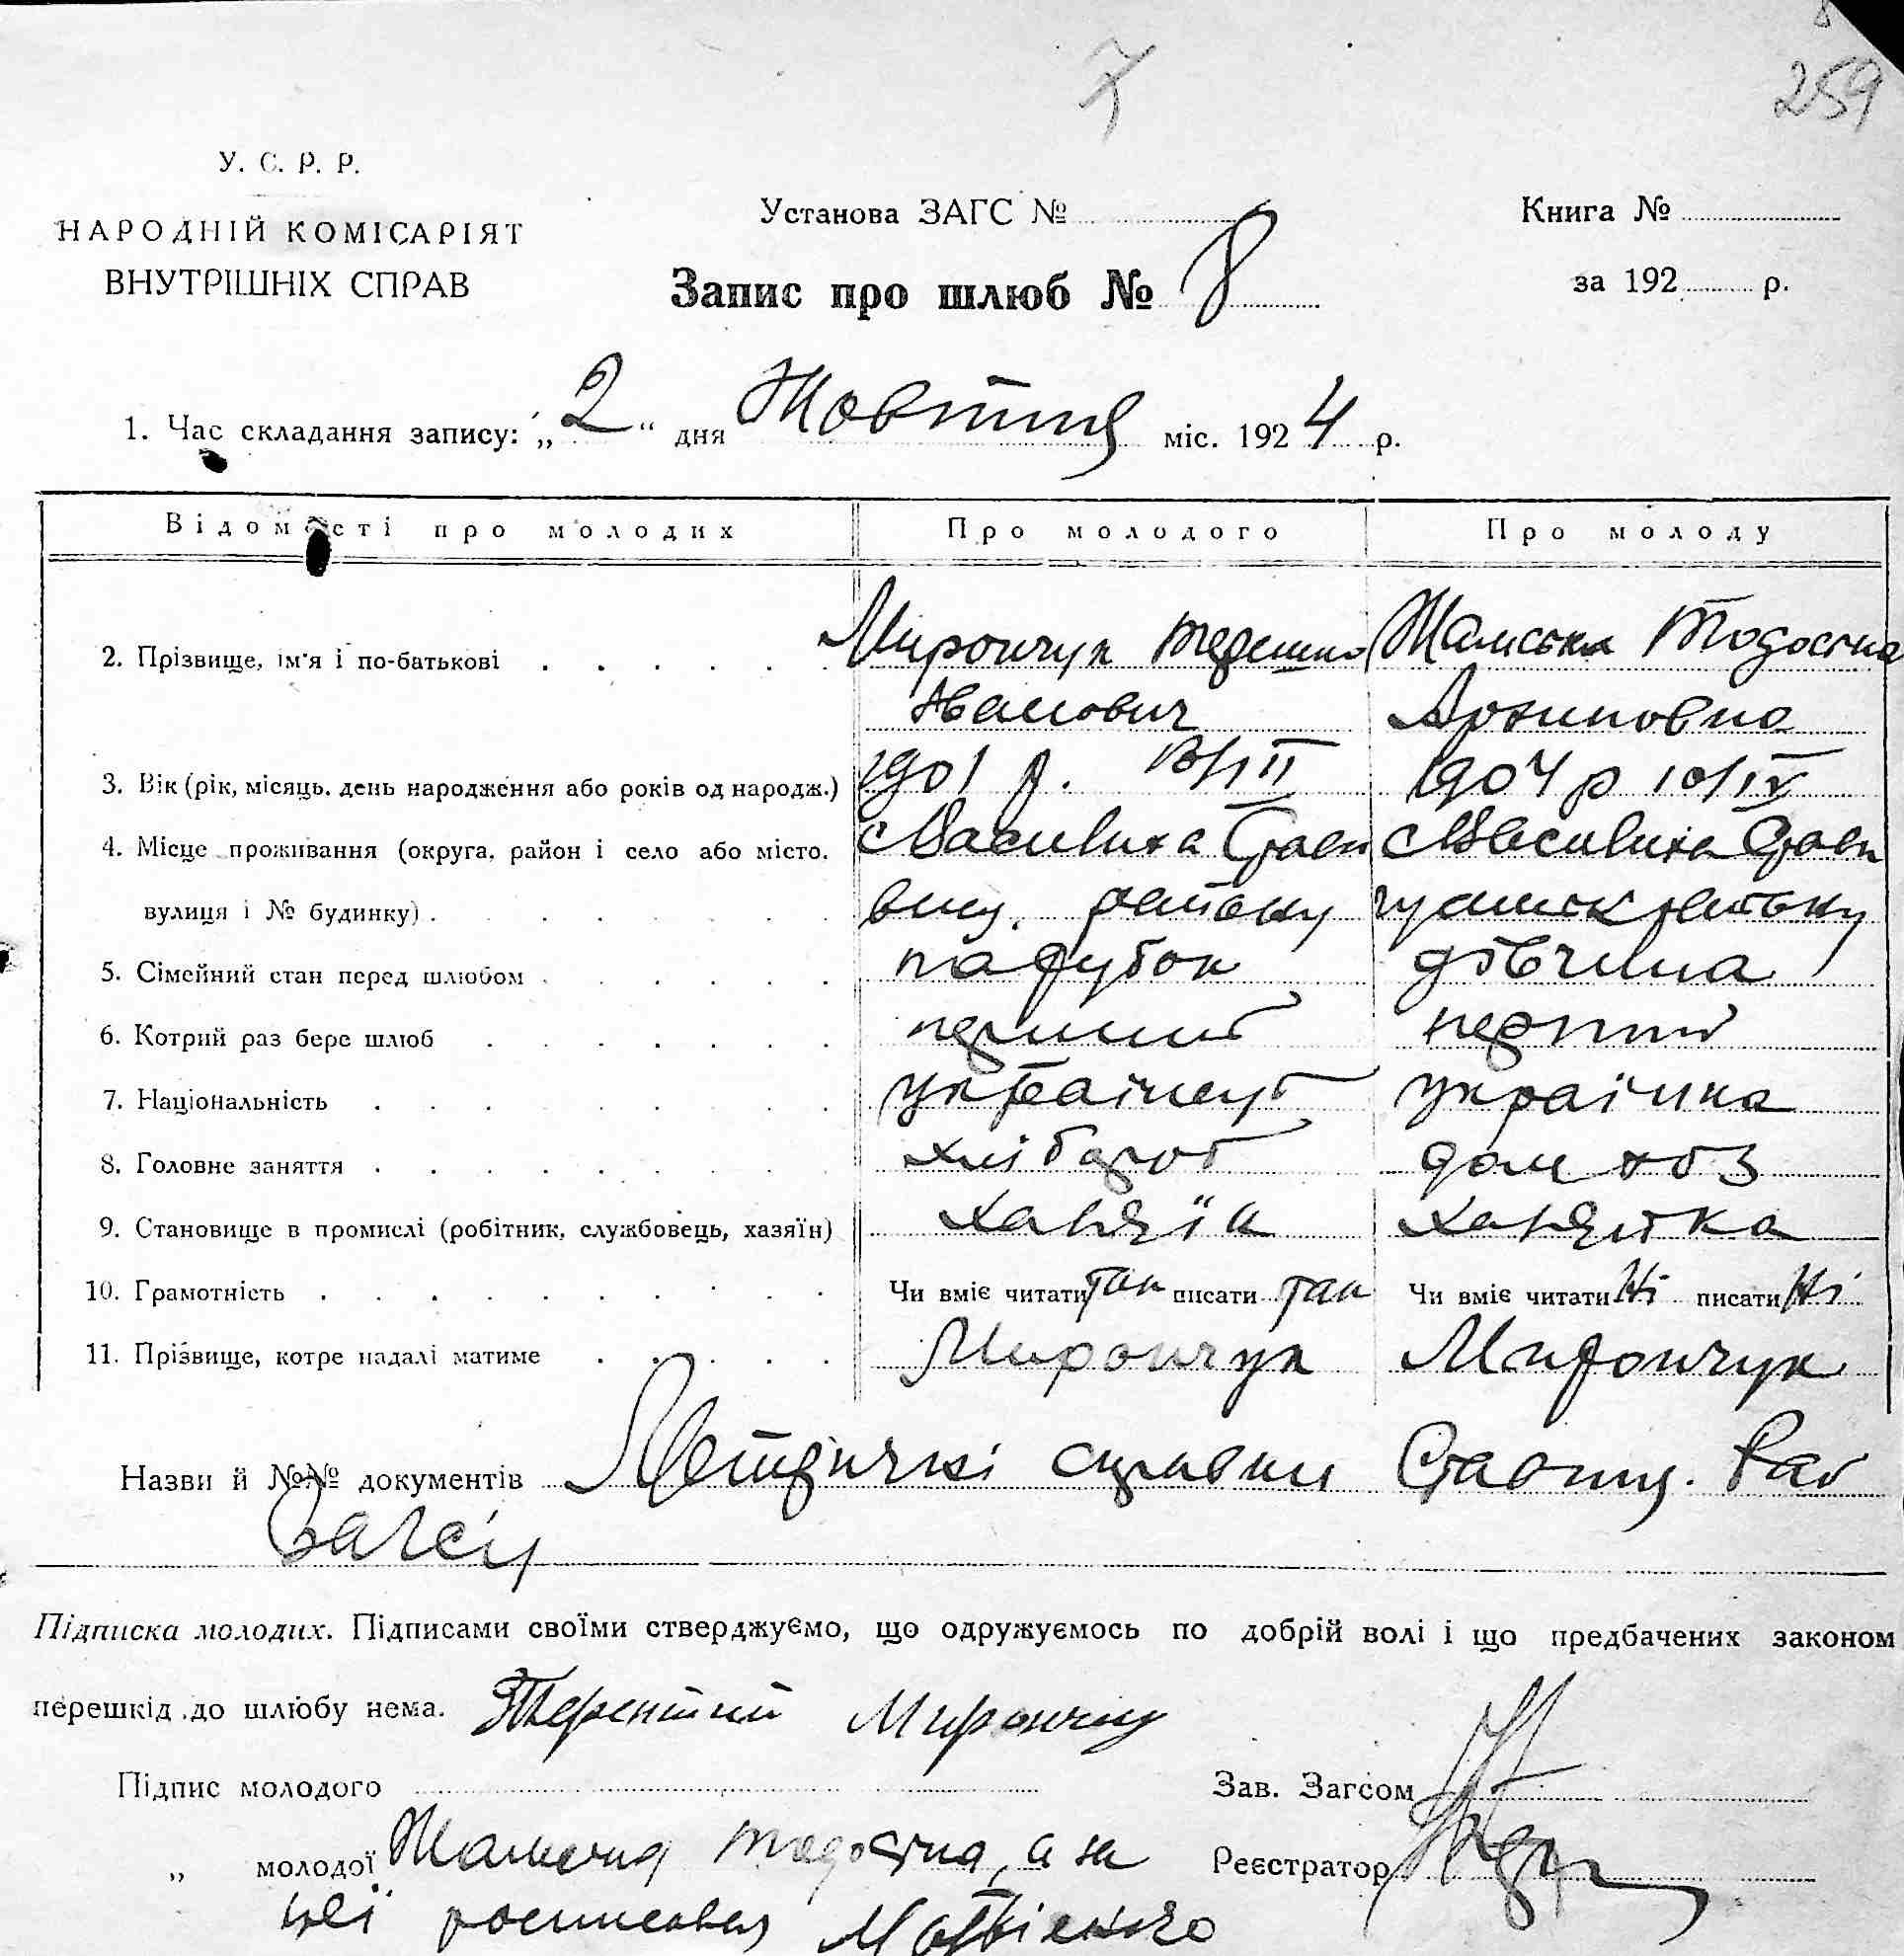 7
259
У. С. Р. Р.
НАРОДНІЙ КОМІСАРІЯТ
ВНУТРІШНІХ СПРАВ
Установа ЗАГС №
Книга №
Запис про шлюб № 8
за 192 р.
1. Час складання запису: „2“ дня Жовтня міс. 1924 р.
Відомості про молодих Про молодого Про молоду
2. Прізвище, ім'я і по-батькові Мирончук Терешко Тодоська
Иванович Архиповна
3. Вік (рік, місяць, день народження або років од народж.) 1901 р. 1904 р 10/IV
4. Місце проживання (округа, район і село або місто, с Василиха Стави с Василиха Стави
вулиця і № будинку) району
5. Сімейний стан перед шлюбом парубок дівчина
6. Котрий раз бере шлюб перший перший
7. Національність українець українка
8. Головне заняття хлібороб дом хоз
9. Становище в промислі (робітник, службовець, хазяїн) хазяїн хазяйка
10. Грамотність Чи вміє читати так писати так Чи вміє читати Ні писати Ні
11. Прізвище, котре надалі матиме Мирончук Мирончук
Назви й №№ документів Метричні справки Ставищ. Рай
Загсу
Підписка молодих. Підписами своїми стверджуємо, що одружуємось по добрій волі і що предбачених законом
перешкід до шлюбу нема. Терентий Мирончук
Підпис молодого Зав. Загсом
„ молодої Тодоська, а за Реєстратор
неї росписався Матвієнко